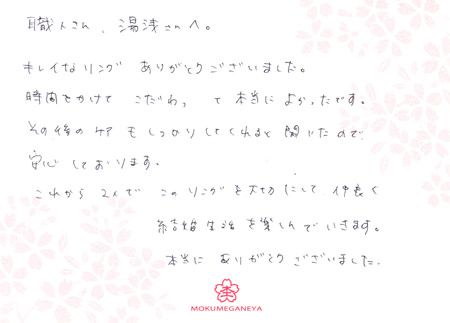 職人さん、湯浅さんへ。
キレイなリング ありがとうございました。
時間をかけて こだわって 本当に よかったです。
その後のケアもしっかりしてくれると聞いたので
安心しております。
これから 2人で このリングを大切にして 仲良く
結婚生活を楽しんでいきます。
本当に ありがとうございました。
MOKUMEGANEYA